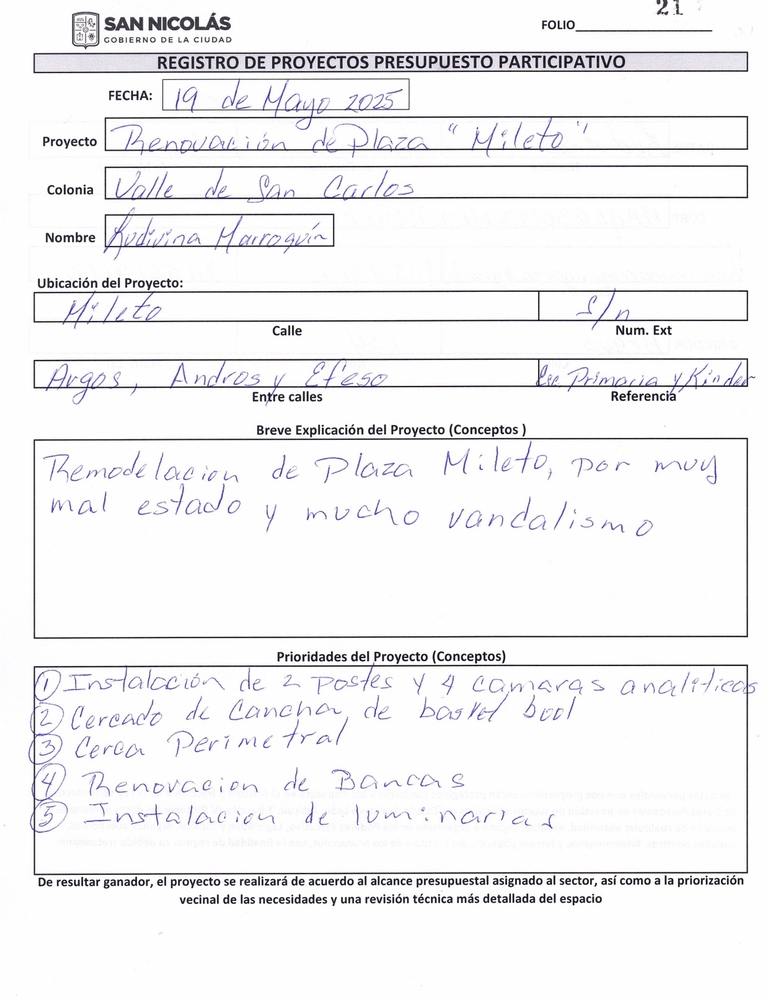 21
SAN NICOLÁS
GOBIERNO DE LA CIUDAD
FOLIO
REGISTRO DE PROYECTOS PRESUPUESTO PARTICIPATIVO
FECHA: 19 de Mayo 2025
Proyecto Renovación de Plaza "Mileto"
Colonia Valle de San Carlos
Nombre Ludivina Marroquín
Ubicación del Proyecto:
Mileto S/n
Calle Num. Ext
Argos, Andros y Efeso Esc. Primaria y Kinder
Entre calles Referencia
Breve Explicación del Proyecto (Conceptos )
Remodelacion de Plaza Mileto, por muy
mal estado y mucho vandalismo
Prioridades del Proyecto (Conceptos)
1 Instalación de 2 postes y 4 camaras analiticas
2 Cercado de Cancha de basket bool
3 Cerca Perimetral
4 Renovacion de Bancas
5 Instalacion de luminarias
De resultar ganador, el proyecto se realizará de acuerdo al alcance presupuestal asignado al sector, así como a la priorización
vecinal de las necesidades y una revisión técnica más detallada del espacio